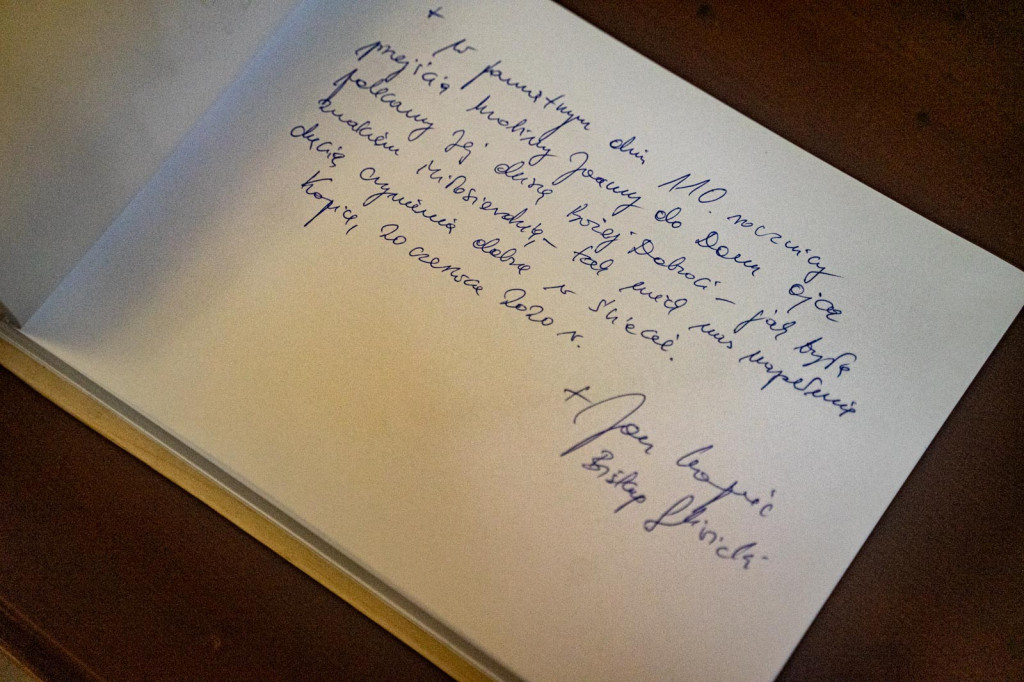 + W pamiętnym dniu 110. rocznicy
przejścia hrabiny Joanny do Domu Ojca
polecamy Jej duszę Bożej Dobroci – jak była
znakiem Miłosierdzia – tak niech nas napełnia
chęcią czynienia dobra w świecie.
Kopice, 20 czerwca 2020 r.
+ Jan Kopiec
Biskup Gliwicki